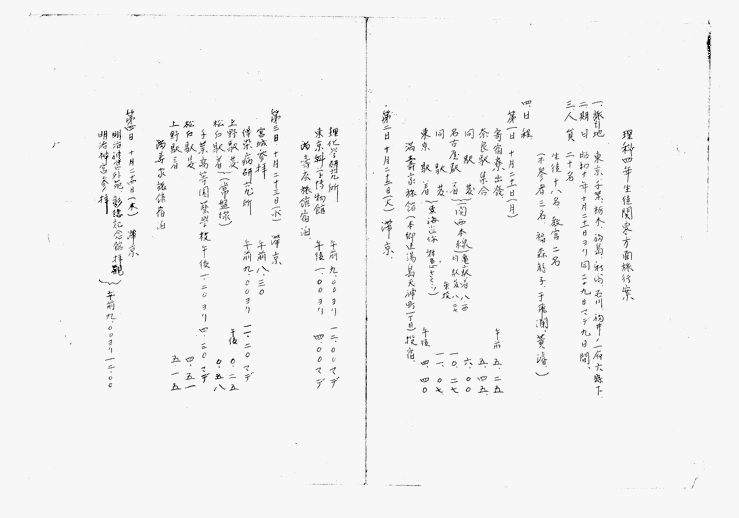 理科四年生徒関東方面旅行案
一、旅行地 東京、千葉、栃木、福島、新潟、石川、福井ノ一府六縣下
二、期日 昭和十年十月二十一日ヨリ同二十九日マデ九日間
三、人員 二十名
生徒十八名 教官二名
(不参者三名
四、日程
第一日 十月二十一日(月)
寄宿寮出発 午前 五.二五
奈良駅集合 五.四五
同 駅発 六.〇〇
名古屋駅着 (関西本線) 一〇.二七
同 駅発 一一.〇七
東京駅着 午後 四.四〇
満寿家旅館(本郷区湯島天神町一丁目)投宿
第二日 十月二十二日(火) 滞京
理化学研究所 午前 九.〇〇ヨリ 一二.〇〇マデ
東京科学博物館 午後 一.〇〇ヨリ 四.〇〇マデ
満寿家旅館宿泊
第三日 十月二十三日(水) 滞京
宮城参拝 午前八.三〇
伝染病研究所 午前九.〇〇ヨリ 一一.二〇マデ
上野駅発 (常盤線) 午後 〇.二五
松戸駅着 〇.五八
千葉高等園藝学校 午後一.二〇ヨリ 四.二〇マデ
松戸駅発 四.五一
上野駅着 五.一五
満寿家旅館宿泊
第四日 十月二十四日(木) 滞京
明治神宮外苑 記念館拝観
明治神宮参拝 午前九.〇〇ヨリ一二.〇〇